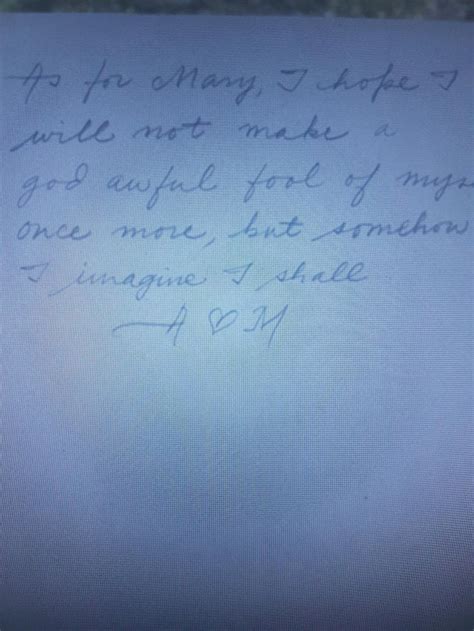 As for Mary, I hope I
will not make a
god awful fool of mys
once more, but somehow
I imagine I shall
—A ♡ M